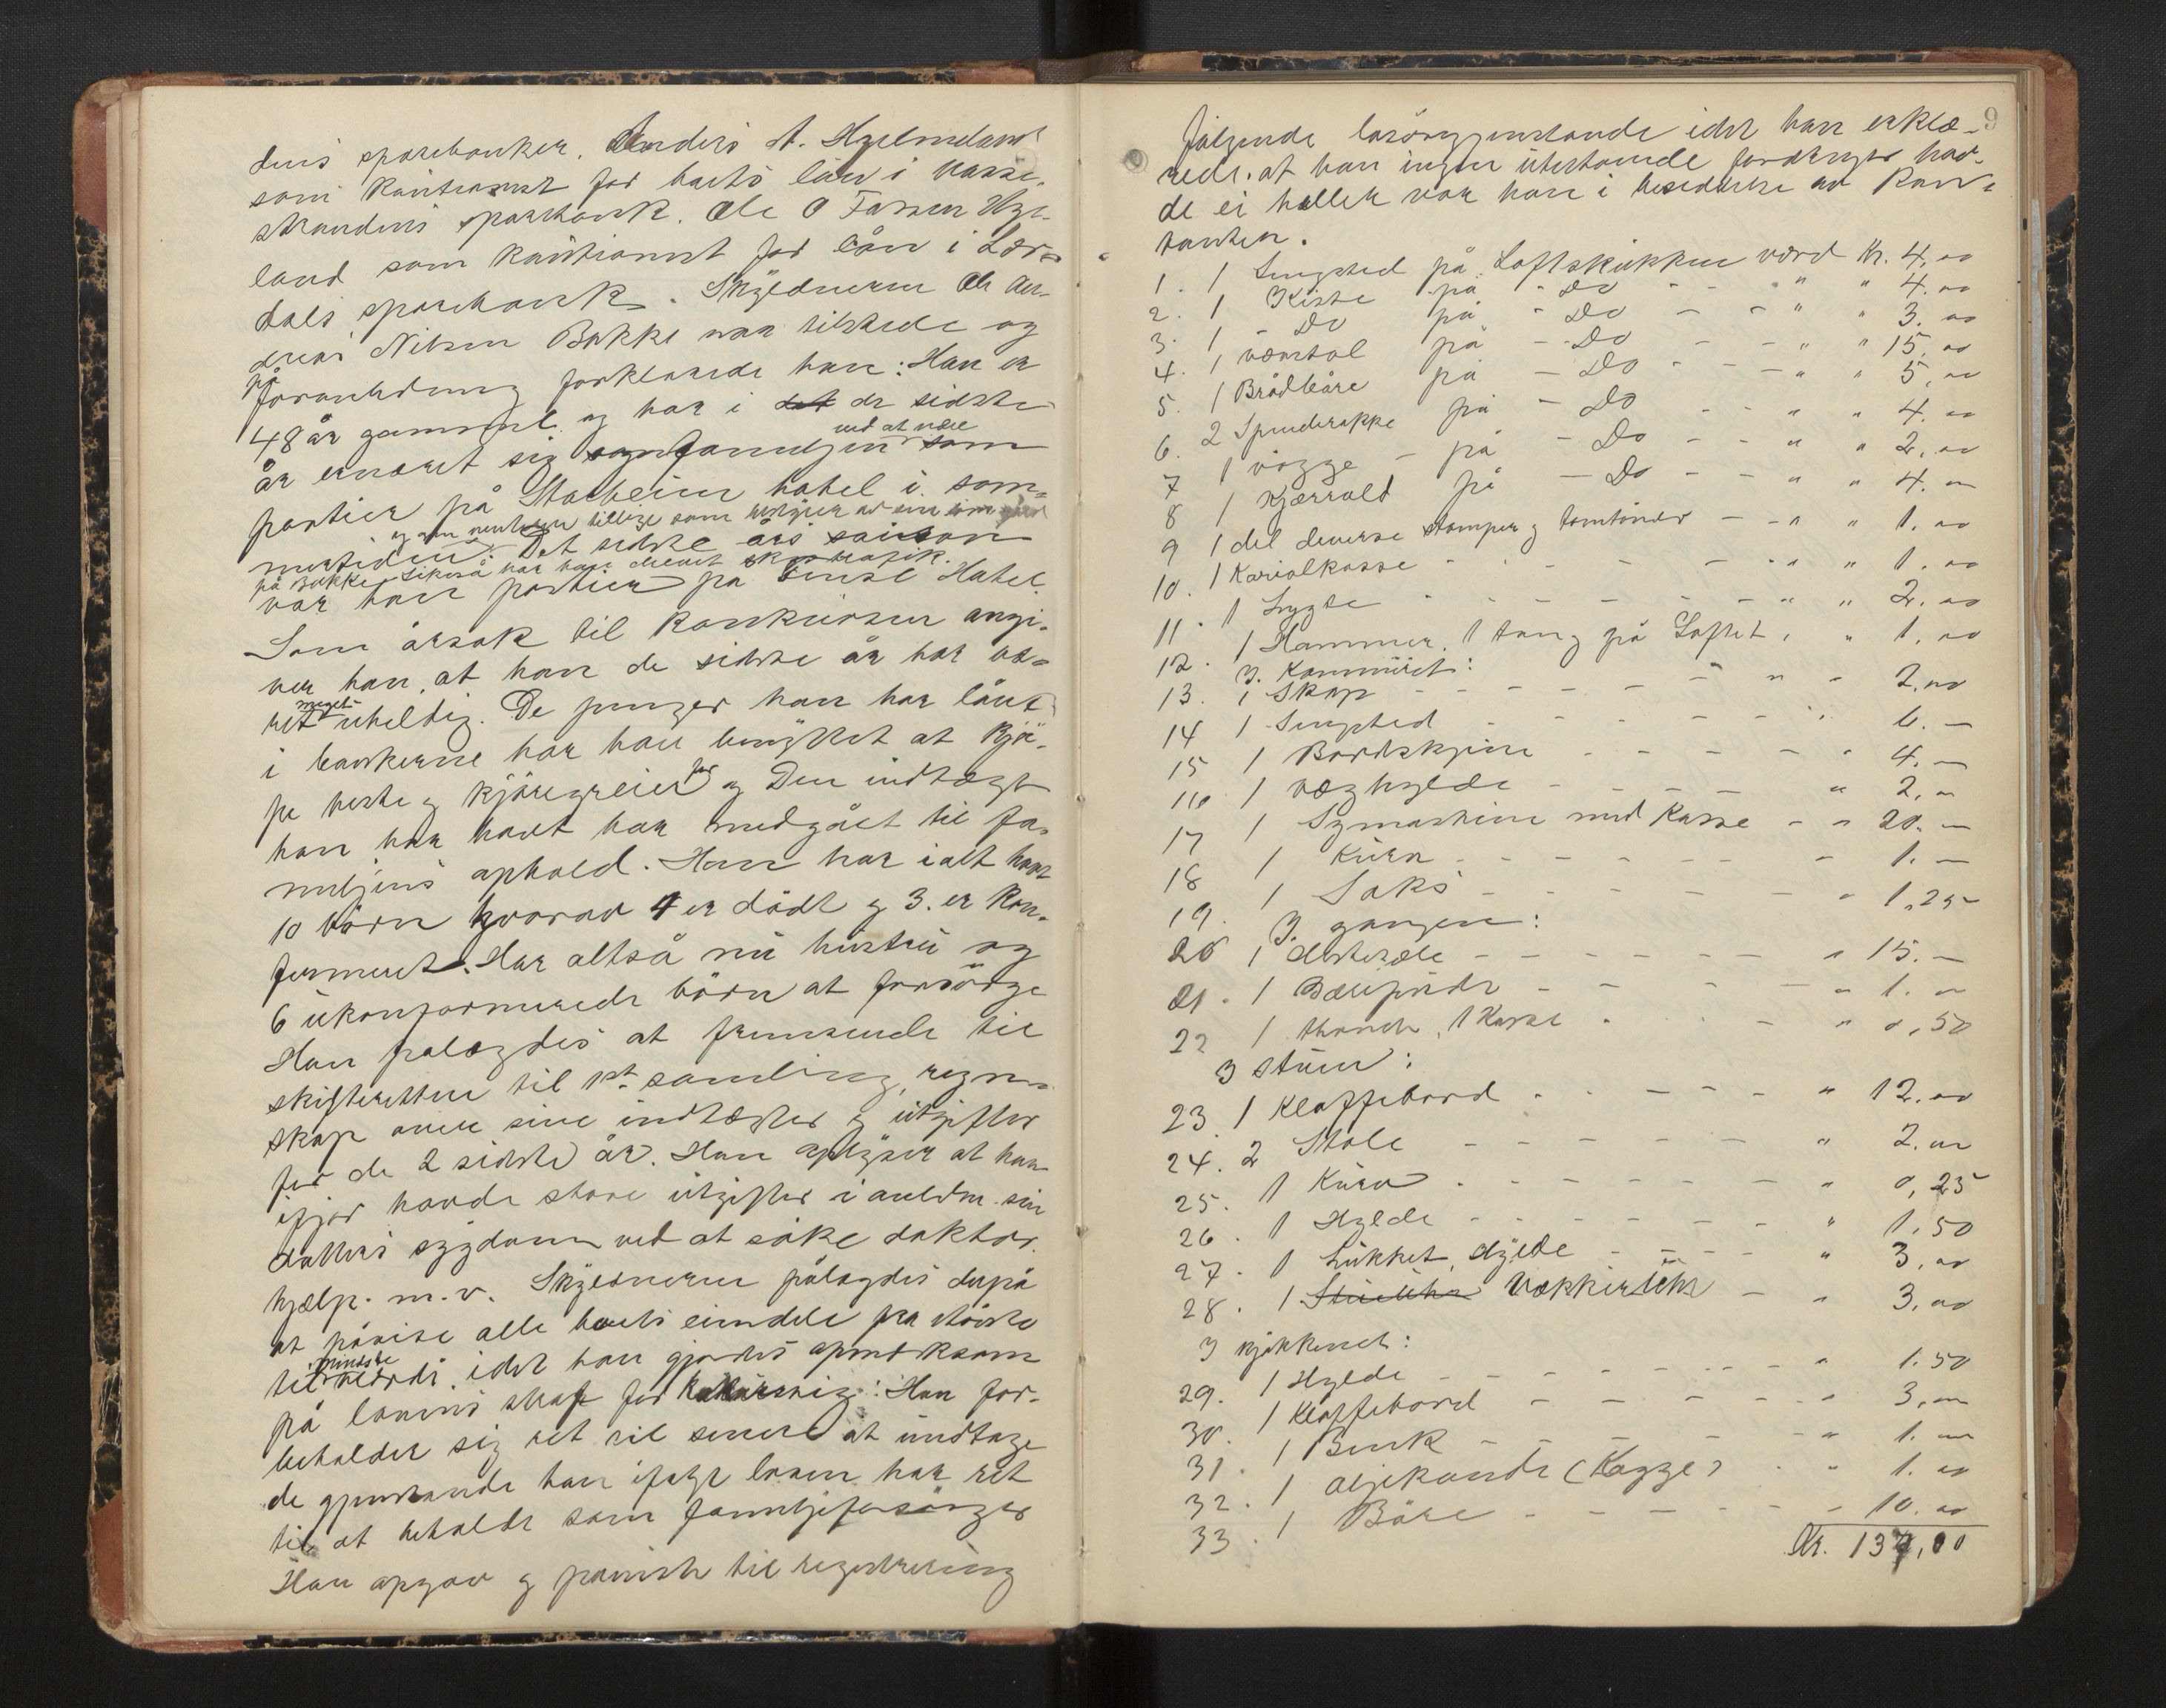 dens sparebanker. Anders A. Hylland
som kautionist for barts lån i Vasse
strandens sparebank. Ole O Farnen Hyl-
land som kautionist for lån i Lær-
dals sparebank. Skyldneren Ole An-
dreas Nilsen Bakke var tilstede og
på
foranledning forklarede han: Han er
48 år gammel og har i det de sidste
ved at være
år ernæret sig og familjen som
portier på Stalheim hotel i som-
og om vinteren tillige som bestyrer av en
mertiden. Det sidste års saison
på Bakke. Likeså har han drevet skystrafik.
var han portier på Finse Hotel.
Som årsak til konkursen angi-
ver han, at han de sidste år har væ-
meget
ret uheldig. De penger han har lånt
i bankerne har han benyttet at kjö-
for
pe heste og kjöregreier og Den indtægt
han har havt har medgået til fa-
miljens ophold. Han har ialt havt
10 börn hvorav 4 er dödt og 3. er kon-
firmeret. Har altså nu hustru og
6 ukonfirmerede börn at forsörge
Han pålagdes at fremsende til
skifteretten til 1ste samling, regn-
skap over sine indtægter og utgifter
for de 2 sidste år. Han oplyser at han
ifjor havde store utgifter i anledn. sin
datters sygdom ved at söke doktor.
hjælp. m. v. Skyldneren pålagdes derpå
at påvise alle boets eiendele fra störste
mindste
til værdi, idet han gjordes opmerksom
på lovens straf for Han for-
beholder sig ret til senere at undtage
de gjenstande han ifölge loven har ret
til at beholde som familjeforsörger
Han opgav og påviste til registrering
9
fölgende lösöregjenstande idet han erklæ-
rede. at han ingen utestående fordringer hav-
de ei heller var han i besiddelse av kon-
tanter.
1. 1 Sengsted på Loftskökken værd Kr. 4,00
2. 1 Kiste på - Do - - " " 4.00
3. 1 - Do på - Do - - " " 3.00
4. 1 vævstol på - Do - - " " 15,00
5. 1 Brödbåre på - Do - - " " 5,00
6. 2 Spinderokke på - Do - - " " 4.00
7 1 vögge - på - Do - - " " 2,00
8 1 Kjærrald på - Do - - " " 4.00
9 1 del diverse stamper og tomtönder - - " " 1.00
10. 1 Kariolkasse - - - - - " " 1.00
11. 1 Lygte - - - - - " " 2.00
12. 1 Hammer, 1 tang på Loftet, " 1,00
I. Kammeret:
13. 1 Skap - - - - - " " 2.00
14 1 Sengsted - - - - - " 6. -
15 1 Bordskjinn - - - - " 4. -
16 1 væghylde - - - - " 2,00
17 1 Symaskine med Kasse - - " 20. -
18 1 Kurv - - - - - - 1. -
19. 1 Saks - - - - - " 1.25
I. gangen:
20 1 Hestesæle - - - - - " 15. -
21. 1 Bærspand - - - - - " 1. 00
22 1 1 Kasse - - - " 0,50
I stuen:
23 1 Klaffebord - - - - - " 12.00
24. 2 Stole - - - - - - " 2.00
25. 1 Kurv - - - - - - " 0,25
26. 1 Hylde - - - - - - " 1.50
27. 1 Lukket, Hylde - - - " 3,00
28. 1 Vækkerühr - " 3,00
I kjökkenet:
29. 1 Hylde - - - - - - " 1.50
30. 1 Klaffebord - - - - - " 3,00
31. 1 Benk - - - - - - " 1.00
32. 1 oljekande (Kagge) - " 1.00
33. 1 Båre - - - - - - 10.00
Kr. 137,00